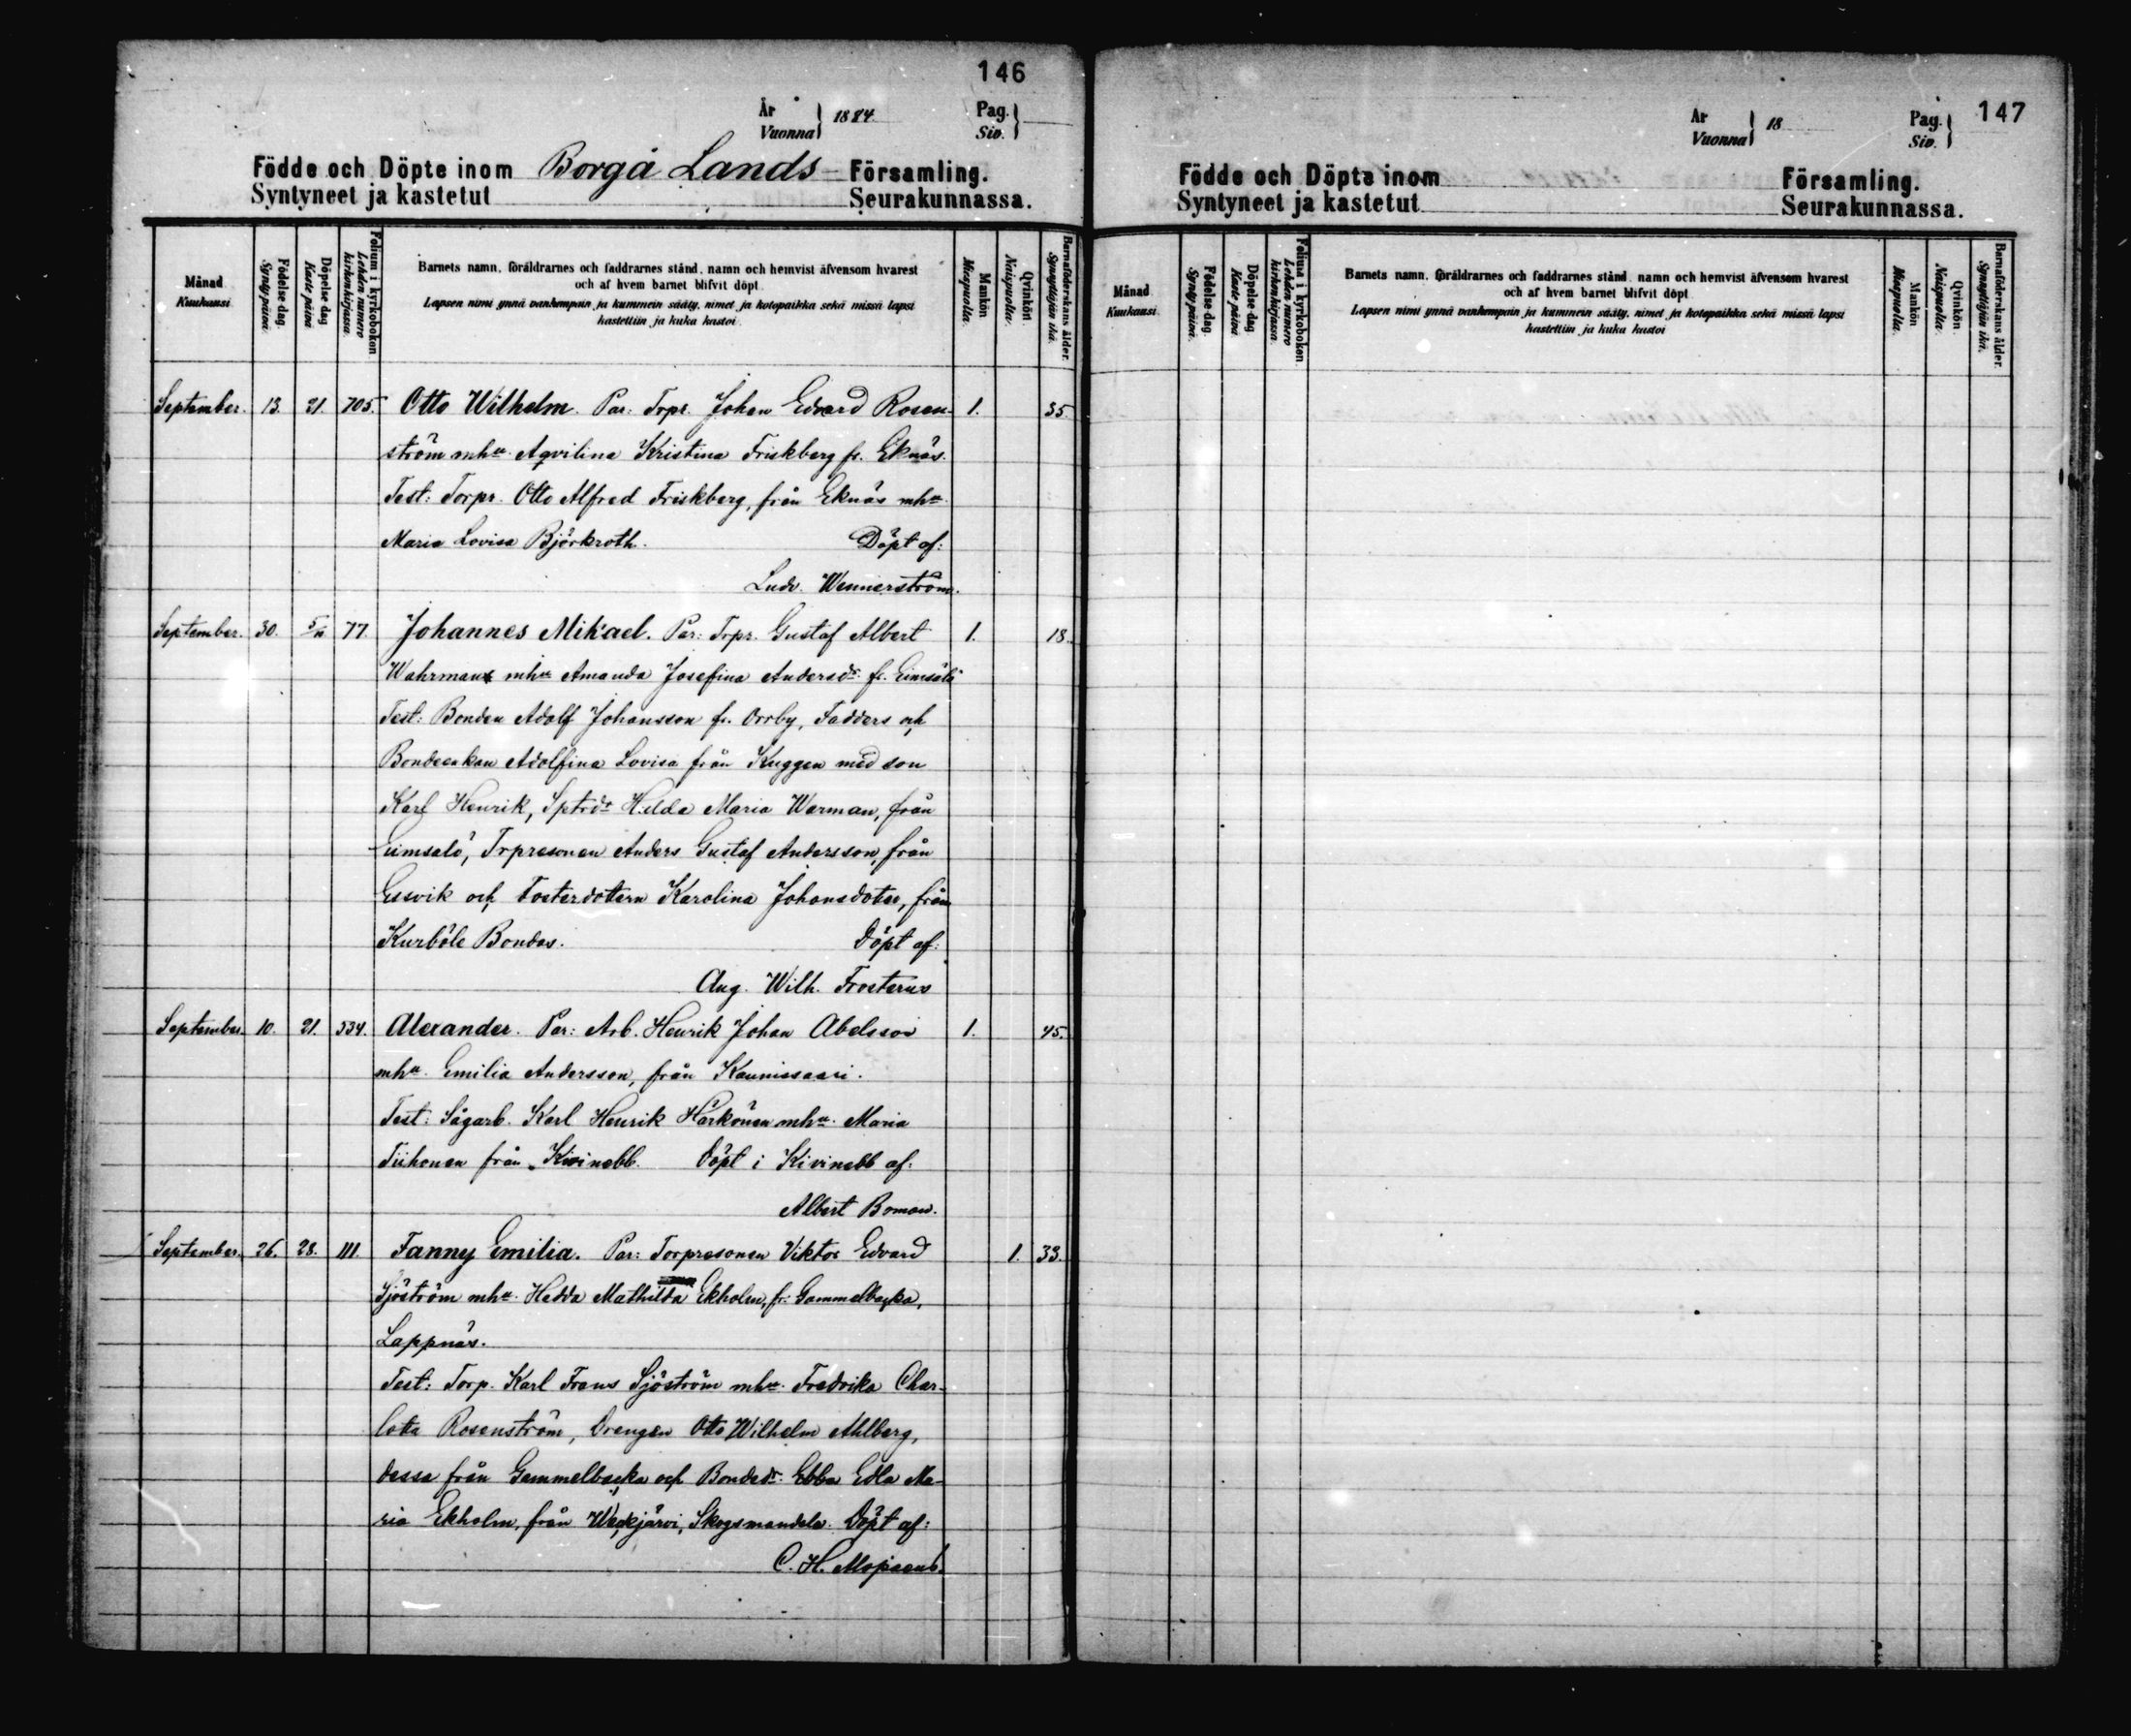 146
År
Vuonna } 1884
Pag.
Siv. }
Födde och Döpte inom Borgå Lands Församling.
Syntyneet ja kastetut Seurakunnassa.
Månad
Kuukausi
Födelse dag.
Syntypäivä.
Döpelse dag
Kaste päivä
Folium i kyrkoboken
Lehden numero kirkonkirjassa.
Barnets namn, föräldrarnes och faddrarnes stånd, namn och hemvist äfvensom hvarest
och af hvem barnet blifvit döpt.
Lapsen nimi ynnä vanhempain ja kummein sääty, nimet ja kotopaikka sekä missä lapsi
kastettiin ja kuka kastoi.
Mankön
Miespuolta.
Qvinkön.
Naispuolta.
Barnaföderskans ålder.
Synnyttäjän ikä.
September. 13. 21. 705. Otto Wilhelm. Par: Torpr. Johan Edvard Rosen- 1. 35
ström mhu. Aqvilina Kristina Friskberg fr. Eknäs.
Test: Torpr. Otto Alfred Friskberg, från Eknäs mhu
Maria Lovisa Björkroth. Döpt af:
Ludv. Wennerström.
September. 30. 5/10 77. Johannes Mikael. Par: Trpr. Gustaf Albert 1. 18.
Wahrman mhu Amanda Josefina Andersdr. fr. Eimsalö
Test: Bonden Adolf Johansson fr. Orrby, Fadders och
Bondeenkan Adolfina Lovisa från Kuggen med son
Karl Henrik, Sptrdr Hilda Maria Warman, från
Eimsalö, Trpresonen Anders Gustaf Andersson, från
Essvik och Fosterdottern Karolina Johansdoter, från
Kurböle Bondas. Döpt af:
Aug. Wilh. Frosterus
September. 10. 21. 334. Alexander. Par: Arb. Henrik Johan Abelsson 1. 45.
mhu. Emilia Andersson, från Kaunissaari.
Test: Sågarb. Karl Henrik Härkönen mhu. Maria
Tiihonen från Kivinebb. Döpt i Kivinebb af:
Albert Boman.
September. 26. 28. 111. Fanny Emilia. Par: Torpresonen Viktor Edvard 1. 33.
Sjöström mhu. Hedda Mathilda Ekholm, fr. Gammelbacka,
Lappnäs.
Test: Torp. Karl Frans Sjöström mhu. Fredrika Char-
lotta Rosenström, Drengen Otto Wilhelm Ahlberg,
dessa från Gammelbacka och Bondedr. Ebba Edla Ma-
ria Ekholm, från Weckjärvi, Skogsmandela. Döpt af:
C. H.
147
År
Vuonna } 18
Pag.
Siv. }
Födde och Döpte inom Församling.
Syntyneet ja kastetut Seurakunnassa.
Månad
Kuukausi
Födelse dag.
Syntypäivä.
Döpelse dag
Kaste päivä
Folium i kyrkoboken.
Lehden numero kirkonkirjassa.
Barnets namn, föräldrarnes och faddrarnes stånd, namn och hemvist äfvensom hvarest
och af hvem barnet blifvit döpt
Lapsen nimi ynnä vanhempain ja kummein sääty, nimet ja kotopaikka sekä missä lapsi
kastettiin ja kuka kastoi
Mankön
Miespuolta.
Qvinkön
Naispuolta.
Barnaföderskans ålder.
Synnyttäjän ikä.